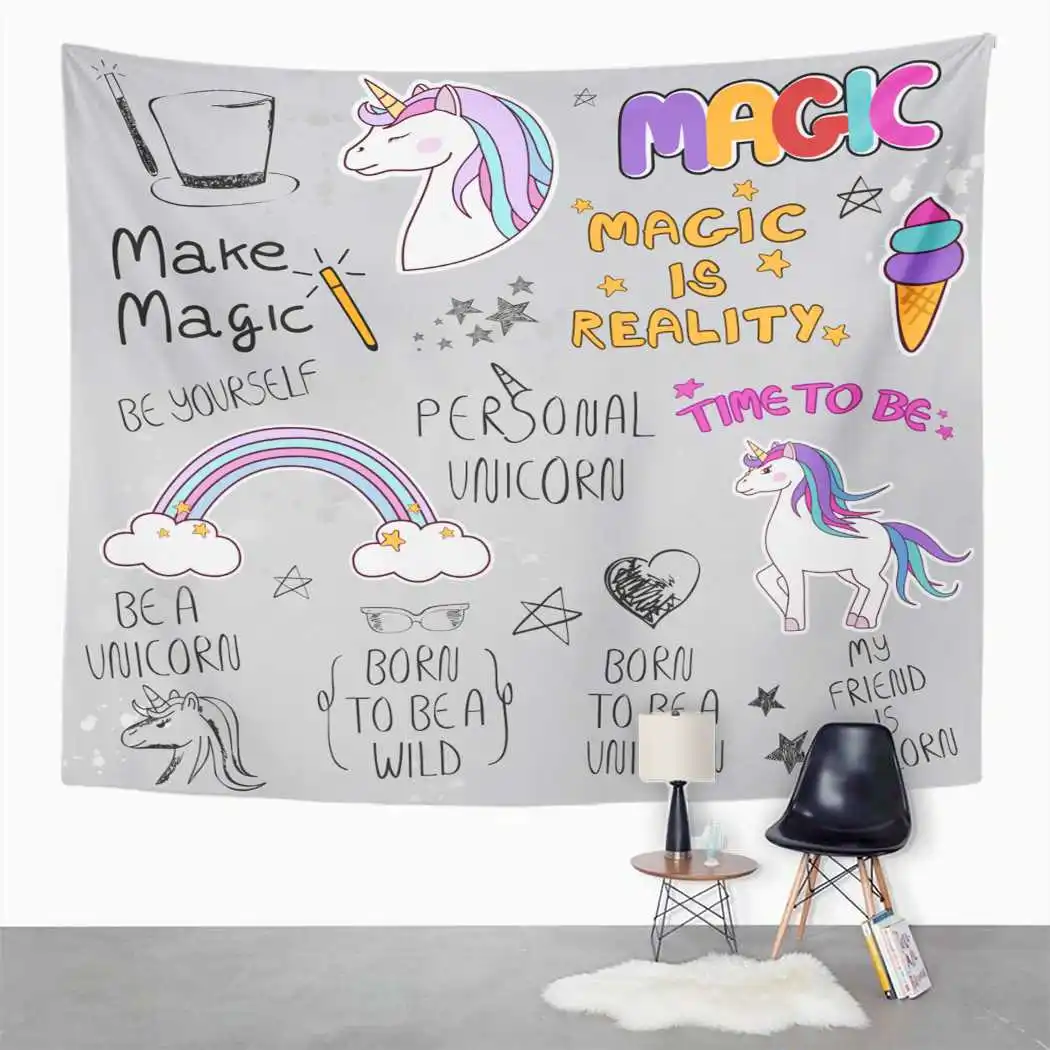 MAGIC
Make
Magic
MAGIC
IS
REALITY
BE YOURSELF
PERSONAL
UNICORN
TIME TO BE
BE A
UNICORN
BORN
TO BE A
WILD
BORN
TO BE A
MY
FRIEND
IS